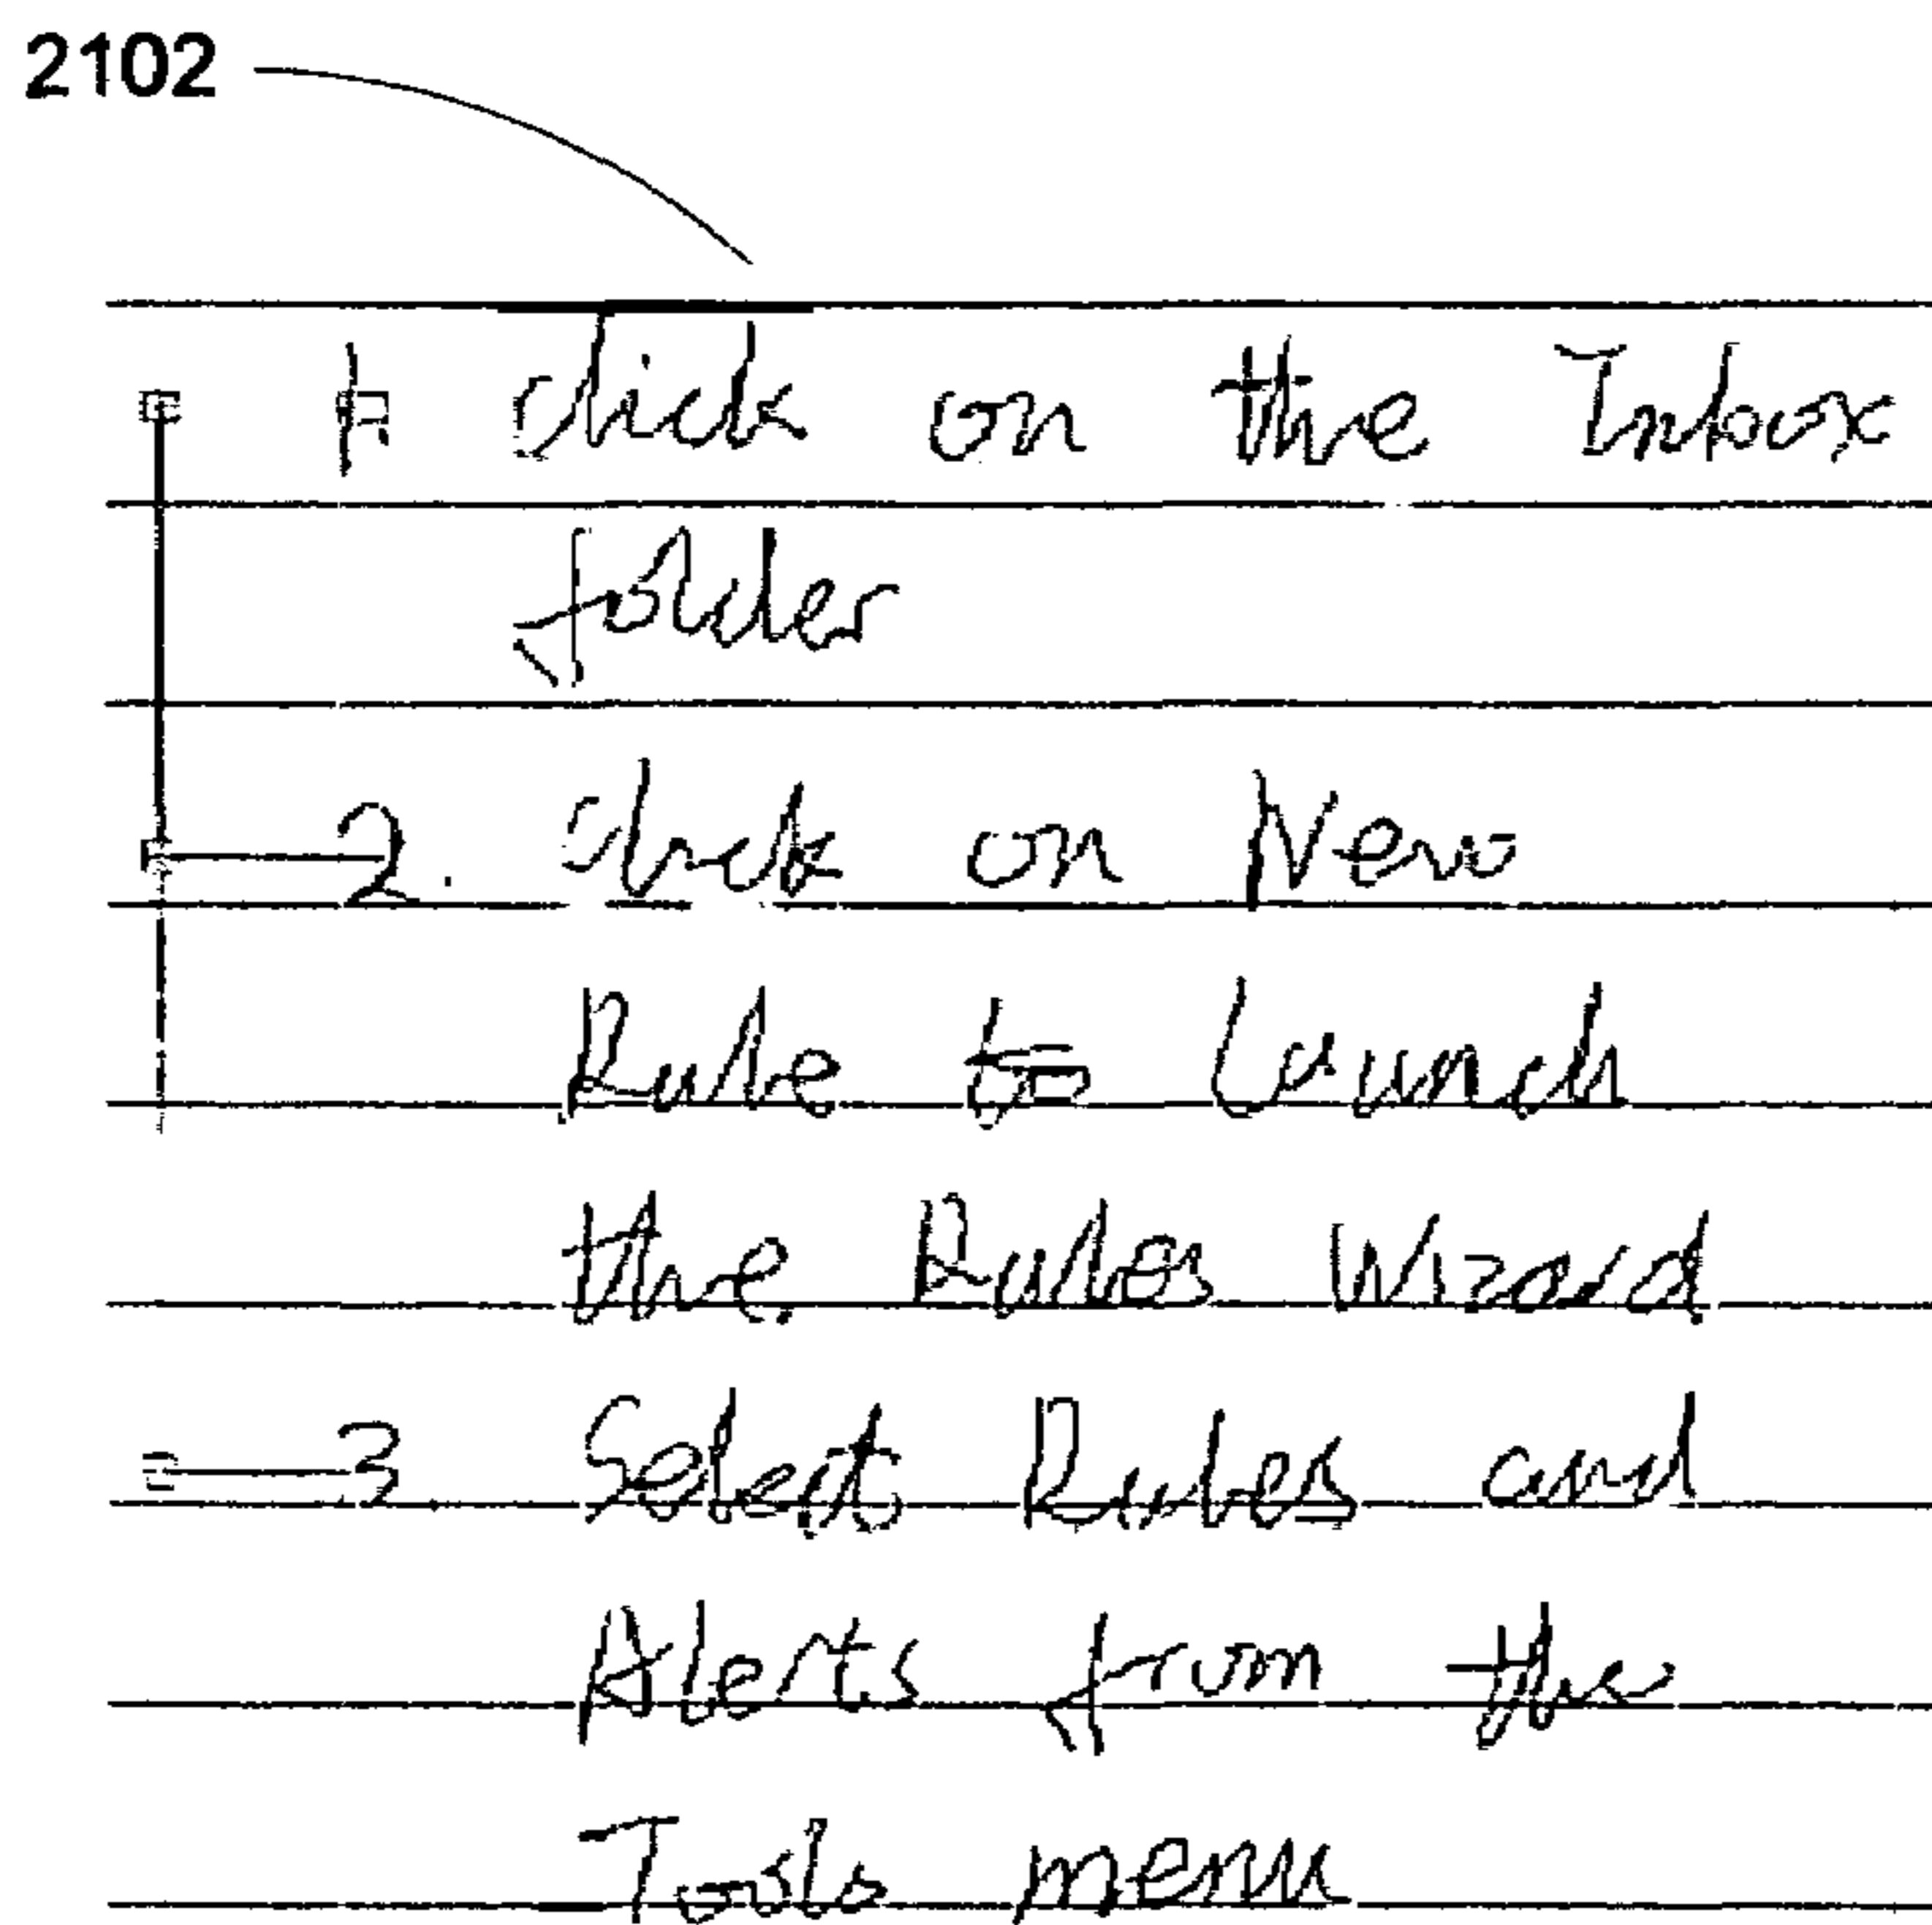 2102
1. click on the Inbox
folder
2. click on New
Rule to launch
the Rules Wizard
3. Select Rules and
Alerts from the
Tools menu